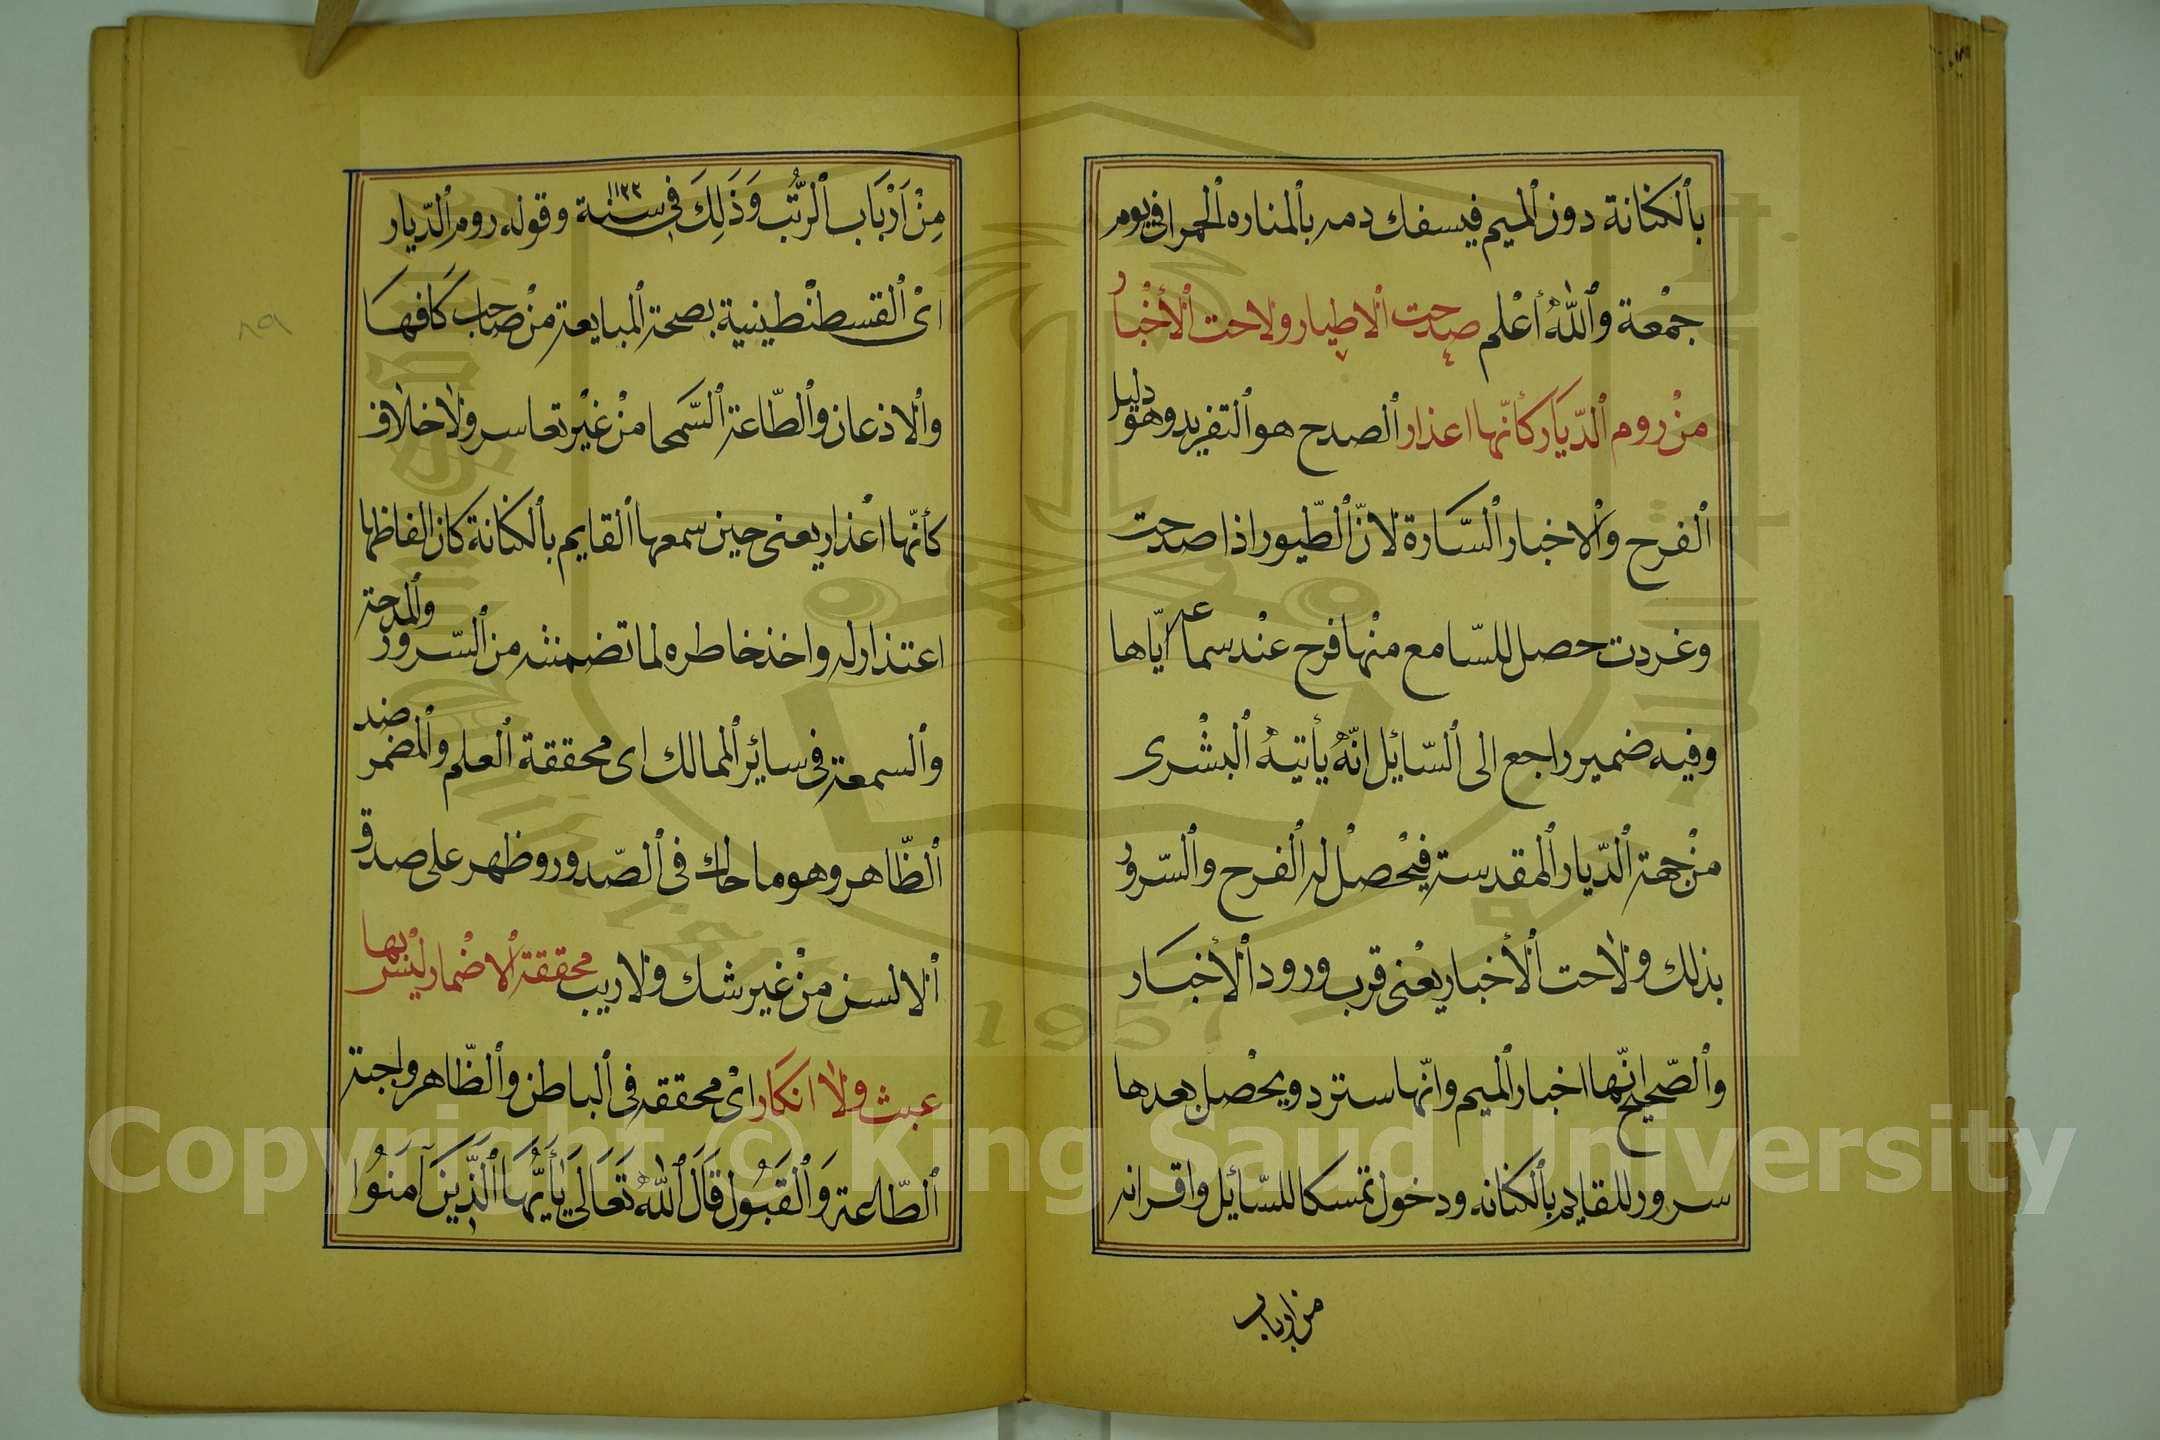 بالكنانة دون الميم فيسفك دمه بالمناره الحمرا في يوم
جمعة والله أعلم صدحت الاطيار ولاحت الأخبار
من روم الديار كأنها اعذار الصدح هو التغريد وهو دليل
الفرح والاخبار السارة لان الطيور اذا صدحت
وغردت حصل للسامع منها فرح عند سماعه اياها
وفيه ضمير راجع الى السائل انه يأتيه البشرى
من جهة الديار المقدسة فيحصل له الفرح والسرور
بذلك ولاحت الأخبار يعنى قرب ورود الأخبار
والصحيح انها اخبار الميم وانها سترد ويحصل بعدها
سرور للقايم بالكنانه ودخول تمسكا للسائل واقرانه
من ارباب
من ارباب الرتب وذلك في سنة ١١٢٢ وقوله روم الديار
اى القسطنطينية بصحة المبايعة من صاحب كافها
والاذعان والطاعة السمحا من غير تعاسر ولا خلاف
كأنها اعذار يعنى حين سمعها القايم بالكنانة كان الفاظها
اعتذار له واخذ خاطره لما تضمنته من السرور والمدحة
والسمعة في سائر الممالك اى محققة العلم والمضمر ضد
الظاهر وهو ما حاك في الصدور وظهر على صدق
الالسن من غير شك ولا ريب محققة الاضمار ليس بها
عبث ولا انكار اى محققه في الباطن والظاهر واجبة
الطاعة والقبول قال الله تعالى يأيها الذين آمنوا
٨٩
Copyright © King Saud University
1957